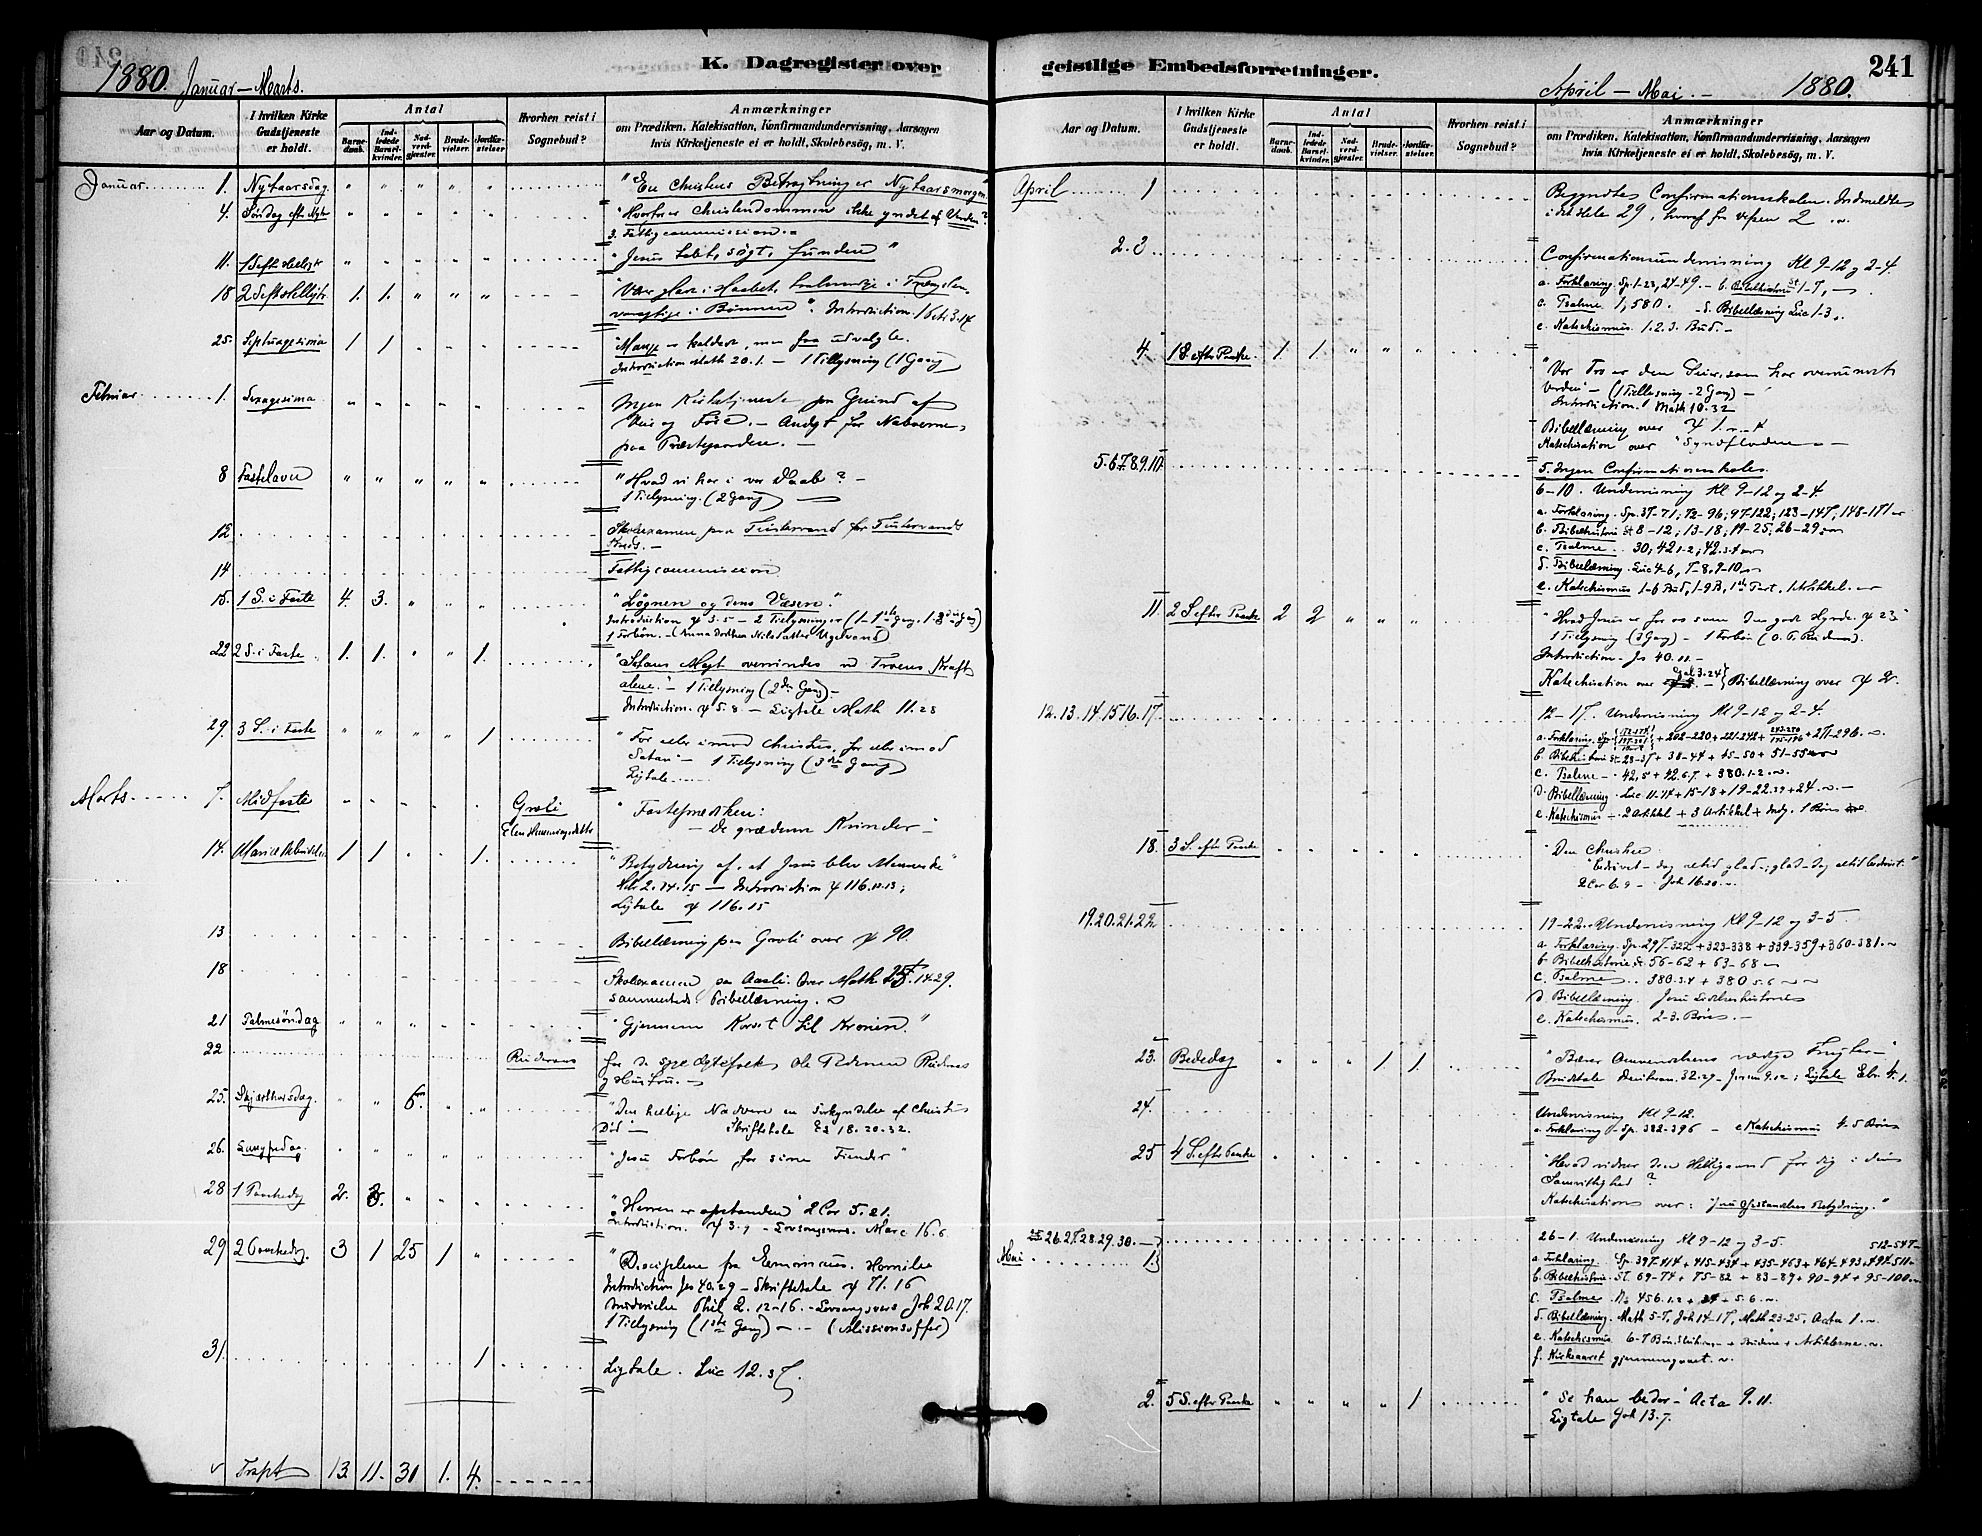 K. Dagregister over
1880. Januar – Marts.
Aar og Datum.
I hvilken Kirke Gudstjeneste er holdt.
Antal
Barnedaab.
Indledede Barselkvinder.
Nadverdgjester.
Brudevielser.
Jordfæstelser.
Hvorhen reist i Sognebud?
Anmærkninger
om Prædiken, Katekisation, Konfirmandundervisning, Aarsagen
hvis Kirketjeneste ei er holdt, Skolebesøg, m. V.
Januar 1. Nytaarsdag " " " " " "En Christens Betragtninger Nytaarsmorgen"
4. Søndag efter Nytaar " " " " " "Hvorfor er Christendommen ikke yndet af Verden?"
3. Fattigcommission.
11. 1 S efter Hell3k " " " " " "Jesus tabt, søgt, funden"
18 2 S eft. Hell3k 1. 1. " " " "Vær glade i Haabet, taalmodige i Trængslen,
varagtige i Bønnen". Introduction
25. Septuagesima 1 1 "Mange er kaldede, men faa udvalgte.
Introduction Math 20.1. – 1 Tillysning (1 Gang)
Februar 1. Sexagesima " " " " " Ingen Kirketjeneste paa Grund af
Veir og Føre. – Andagt for Naboerne
paa Præstegaarden. –
8 Fastelavn " " " " " "Hvad vi har i vor Daab? –
1 Tillysning. (2 Gang)
12 Skoleexamen paa
14 Fattigcommission
15. 1 S. i Faste 4. 3. " " " "Løgnen og dens Væsen."
Introduction ψ 5.5 – 2 Tillysninger
1 Forbøn.
22 2 S. i Faste 1. 1. " " 1. "Satans Magt overvindes ved Troens Kraft
alene." – 1 Tillysning (2den Gang) –
Introduction. ψ 5.8 – Ligtale Math 11.28
29. 3 S. i Faste " " " " 1 "For eller imod Christus, for eller imod
Satan" – 1 Tillysning (3die Gang)
Ligtale
Marts 7. Midfaste " " " " " Groli
"Fasteprædiken:
– De grædende Kvinder –"
14. Mariæ Bebudelse 1 1 " " 1. "Betydning af, at Jesus blev Menneske"
Heb 2.14.15 – Introduction ψ 116.12.13;
Ligtale ψ 116.15
13 Bibellæsning paa Groli over ψ 90.
18 Skoleexamen paa Aasli. Over Math 25, 14-29.
sammesteds Bibellæsning.
21 Palmesøndag " " " " " "Gjennem Korset til Kronen."
22 Ruderaas for de syge Ægtefolk Ole Pedersen Ruderaas
og Hustru. –
25. Skjærthorsdag. " " 6 " " "Den hellige Nadvere en Forkyndelse af Christi
Død" – Skriftetale Ez 18.30-32.
26. Langfredag. " " " " " "Jesu Forbøn for sine Fiender"
28 1 Paaskedag 2. 2. " " " "Herren er opstanden" 2 Cor 5.21.
Introduction. ψ 3.7 – Lovsangsvers. Marc 16.6.
29 2 Paaskedag. 3 1 25 1 " "Disciplene fra Emmaus. Homilie
Introduction Jes 40.29 – Skriftetale ψ 71.16
Brudevielse Phil 2.12-16. – Lovsangsvers Joh 20.17.
1 Tillysning (1ste Gang) – (Missionsoffer)
31. 1 Ligtale. Luc 12.
Trspt 13. 11. 31 1. 4.
geistlige Embedsforretninger.
241
April – Mai. – 1880.
Aar og Datum.
I hvilken Kirke Gudstjeneste er holdt.
Antal
Barnedaab.
Indledede Barselkvinder.
Nadverdgjester.
Brudevielser.
Jordfæstelser.
Hvorhen reist i Sognebud?
Anmærkninger
om Prædiken, Katekisation, Konfirmandundervisning, Aarsagen
hvis Kirketjeneste ei er holdt, Skolebesøg, m. V.
April 1 Begyndtes Confirmationsskolen. Indmeldtes
i det Hele 29, hvoraf fra 2
2. 3 Confirmationsundervisning Kl 9-12 og 2-4.
a. Forklaring. Sp. 1-23, 24-49. – b. Bibelhistorie St 1-7, –
c. Psalme 1, 580. – d. Bibellæsning Luc 1-3.
e. Katechismus. 1.2.3. Bud. –
4. 1 S. efter Paaske. 1 1 " " " "Vor Tro er den Seier, som har overvundet
Verden" – (1 Tillysning – 2 Gang) –
Introduction. Math 10.32
Bibellæsning over ψ 1.
Katechisation over "Syndfloden – –
5. 6. 7. 8. 9. 10. 5. Ingen Confirmationsskole.
6-10. Undervisning Kl 9-12 og 2-4.
a. Forklaring. Sp. 37-71; 72-96; 97-122; 123-147; 148-171
b. Bibelhistorie St 8-12; 13-18; 19-25; 26-29.
c. Psalme 30; 42 1-2; 42 3-4
d. Bibellæsning. Luc 4-6, 7-8, 9-10
e. Katechismus 1-6 Bud, 1-9 B, 1ste Part. 1 Artikkel.
11. 2 S. efter Paaske 2 2 " " " "Hvad Jesus er for os som den gode Hyrde. ψ 23"
1 Tillysning (3 Gang) – 1 Forbøn (O. P. Ruderaas).
Introduction – Js 40.11. –
Katechisation over Gal 3.24 – Bibellæsning over ψ 2.
12. 13. 14. 15 16. 17. 12-17. Undervisning Kl 9-12 og 2-4.
a. Forklaring. Sp. + 202-220 + 221-242 + + 271-296.
b. Bibelhistorie St. 28-37 + 38-44 + 45-50 + 51-55
c. Psalme – 42,5 + 42.6.7 + 380.1-2.
d. Bibellæsning. Luc 11-14 + 15-18 + 19-22.39 + 24. –
e. Katechismus – 2 Artikkel + 3 Artikkel + Indg. 1 Bøn
18. 3 S. efter Paaske " " " " " "Den Christne
"bedrøvet – dog altid glad; glad – dog altid bedrøvet."
2 Cor 6.9 – Joh 16.20.
19. 20. 21. 22. 19-22. Undervisning Kl 9-12 og 3-5
a Forklaring. Sp. 297-322 + 323-338 + 339-359 + 360-381.
b Bibelhistorie. St. 56-62 + 63-68
c. Psalme 380.3.4 + 380 5.6
d Bibellæsning. Jesu Lidelseshistorie
e. Katechismus. 2-3. Bøn. –
23. Bededag " " " 1 1 "Bærer Omvendelsens værdige Frugter –"
Brudetale Deuteron. 32.29 – Ligtale Ebr. 4.1.
24. Undervisning Kl. 9-12.
a. Forklaring – Sp. 382-396 – e Katechismus 4-5 Bøn
25 4 S. efter Paaske " " " " " "Hvad vidner den Helligaand for dig i din
Samvittighed?
Katechisation over: "Jesu Opstandelses Betydning."
26. 27. 28. 29. 30. –
Mai 1. 26-1. Undervisning Kl 9-12 og 3-5. 512-547
a. Forklaring Sp 397-414 + 415-434 + 435-463 + 464-493 + 494-511
b. Bibelhistorie. St. 69-74 + 75-82 + 83-89 + 90-94 + 95-100.
c. Psalme. No 456.1.2 + 3.4 + 5.6.
d. Bibellæsning. Math 5-7, Joh 14-17, Math 23-25. Acta 1.
e. Katechismus 6-7 Bøn. + Artiklerne.
f. Kirkeaaret gjennemgaaet.
2. 5 S. efter Paaske " " " " 1 "Se han beder" – Acta 9.11.
Ligtale Joh 13.7.